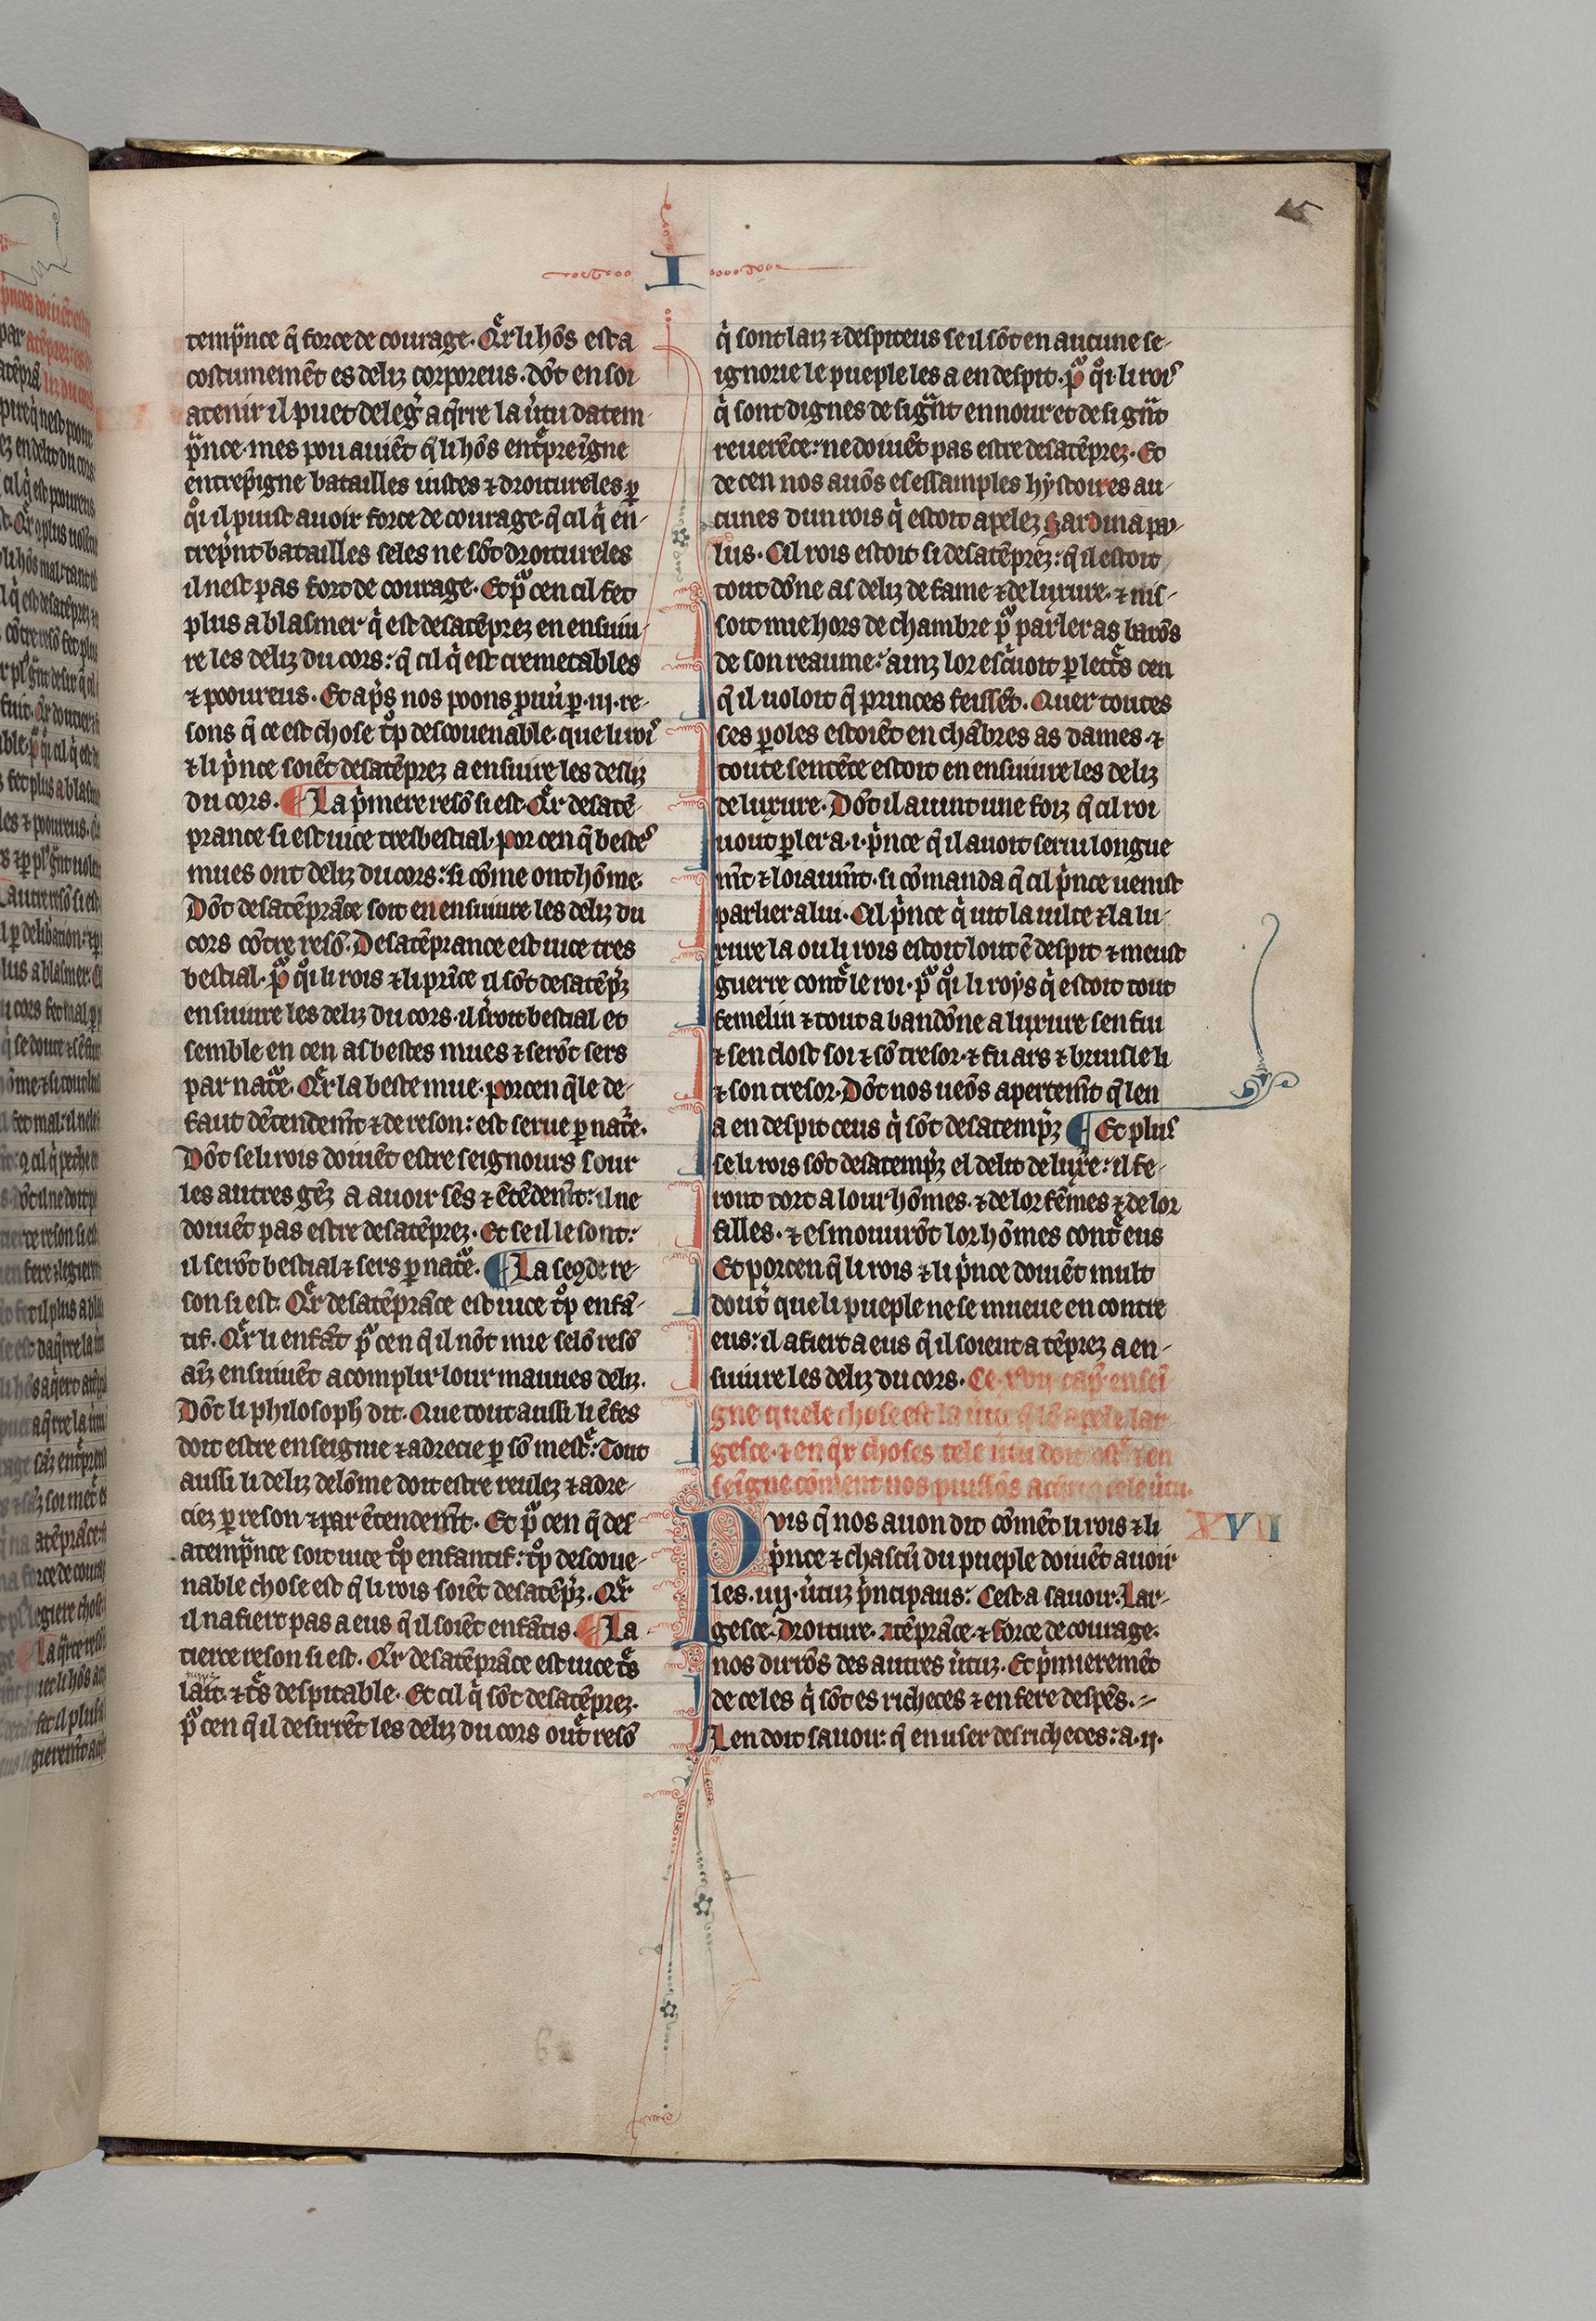 I
temp̃nce q̃ force de courage. Qͣr li hõs est a
costumemẽt es deliz corporeus. dõt en soi
atenir il puet de leg̾ aq̃rre la v̾tu datem
p̃nce. mes pou auiẽt q̃ li hõs entͤpreigne
entrep̃igne batailles iustes ⁊ droitureles ꝑ
qͦi il puist auoir force de courage. q̃ cil qͥ en-
trep̃nt batailles seles ne sõt droitureles
il nest pas fort de courage. Et pͣ cen cil fet
plus a blasmer qͥ est desatẽprez en ensuiu-
re les deliz du cors: q̃ cil qͥ est cremetables
⁊ pooureus. Et ap̾s nos poons ꝓuu̾ ꝑ .iij. re-
sons q̃ ce est chose tͦp descouenable. que li roi
⁊ li pͥnce soiẽt desatẽprez a ensuiure les desliz
du cors. ¶ La pͥmere resõ si est. Qͣr desatẽ-
prance si est uice tresbestial. por cen q̃ bestes
mues ont deliz du cors: si cõme ont hõme.
Dõt desatẽprãce soit en ensuiure les deliz du
cors cõtre resõ. Desatẽprance est uice tres
bestial. pͣ qͦi li rois ⁊ li prĩce il sõt desatẽp̾z
ensuiure les deliz du cors. il s̾roit bestial et
semble en cen as bestes mues ⁊ serõt sers
par natͣe. Qͣr la beste mue. por cen q̃le de-
faut dẽtendem̃t ⁊ de reson: est serue ꝑ natͣe.
Dõt se li rois doiuẽt estre seignours sour
les autres gẽz a auoir sẽs ⁊ ẽtẽdem̃t: il ne
doiuẽt pas estre desatẽprez. Et se il le sont:
il serõt bestial ⁊ sers ꝑ natͣe. ¶ La segõde re-
son si est. Qͣr desatẽprãce est uice tͦp enfã-
tif. Qͣr li enfãt pͣ cen q̃ il nõt mie selõ resõ
aĩz ensuiuẽt acomplir lour mauues deliz.
Dõt li philosoph dit. Que tout aussi li ẽfes
doit estre enseignie ⁊ adrecie ꝑ sõ mestͤ: Tout
aussi li deliz delõme doit estre reulez ⁊ adre-
ciez ꝑ reson ⁊ par ẽtendem̃t. Et pͣ cen q̃ des
atemp̃nce soit uice tͦp enfantif: tͦp descoue-
nable chose est q̃ li rois soiẽt desatẽp̾z. Qͣr
il nafiert pas a eus q̃ il soiẽt enfãtis. ¶ La
tierce reson si est. Qͣr desatẽprãce est uice tͤs
lait. ⁊ tͤs despitable. Et cil qͥ sõt desatẽprez.
pͣ cen q̃ il desirrẽt les deliz du cors outͤ resõ
qͥ sont laiz ⁊ despiteus se il sõt en aucune se-
ignorie le pueple les a en despit. pͣ qͦi. li rois
qͥ sont dignes de sigͣnt ennour et de si gͣnt
reuerẽce: ne doiuẽt pas estre desatẽprez. Et
de cen nos auõs es essamples hystoires au-
cunes dun rois qͥ estoit apelez sardinapa-
lus. Cil rois estoit si desatẽprez: q̃ il estoit
tout dõne as deliz de fame ⁊ de luxure. ⁊ nis-
soit mie hors de chambre pͣ parler as barõs
de son reaume: ainz lor escͥuoit ꝑ lectͤs cen
q̃ il uoloit q̃ princes feissẽt. Quer toutes
ses ꝑoles estoiẽt en chãbres as dames. ⁊
toute sentẽce estoit en ensuiure les deliz
de luxure. Dõt il auint une foiz q̃ cil roi
uout ꝑler a .i. pͥnce q̃ il auoit serui longue
m̃t ⁊ loiaum̃t. si cõmanda q̃ cil pͥnce uenist
parlier a lui. Cil pͥnce qͥ uit la uilte ⁊ la lu-
xure la ou li rois estoit lout ẽ despit ⁊ meust
guerre contͤ le roi. pͣ qͦi. li roys qͥ estoit tout
femelin ⁊ tout abandõne a luxure sen fui
⁊ sen clost soi ⁊ sõ tresor. ⁊ fu ars ⁊ bruisle li
⁊ son tresor. Dõt nos ueõs apertem̃t q̃ len
a en despit ceus qͥ sõt desatemp̾z ¶ Et plus
se li rois sõt desatemp̾z el delit de luxͥe: il fe-
ront tort a lour hõmes. ⁊ de lor fẽmes ⁊ de lor
filles. ⁊ esmouurõt lor hõmes contͤ eus
Et por cen q̃ li rois ⁊ li pͥnce doiuẽt mult
dout̾ que li pueple ne se mueue en contre
eus: il afiert a eus q̃ il soient atẽprez a en-
suiure les deliz du cors. Ce .xvij. cap̃. ensei
gne quele chose est la v̾tu q̃ lẽ apele lar-
gesce. ⁊ en qͣx choses tele v̾tu doit estͤ ⁊ en
seigne cõment nos puissõs aq̃rre cele v̾tu.
Puis q̃ nos auon dit cõmẽt li rois ⁊ li
pͥnce ⁊ chascũ du pueple doiuẽt auoir
les .iiij. v̾tuz pͥncipaus: Cest a sauoir: Lar-
gesce. Droiture. Atẽprãce. ⁊ force de courage.
nos dirõs des autres v̾tuz. Et pͥmieremẽt
de celes qͥ sõt es richeces ⁊ en fere despẽs.
Len doit sauoir: q̃ en user des richeces: a .ij.
XVII